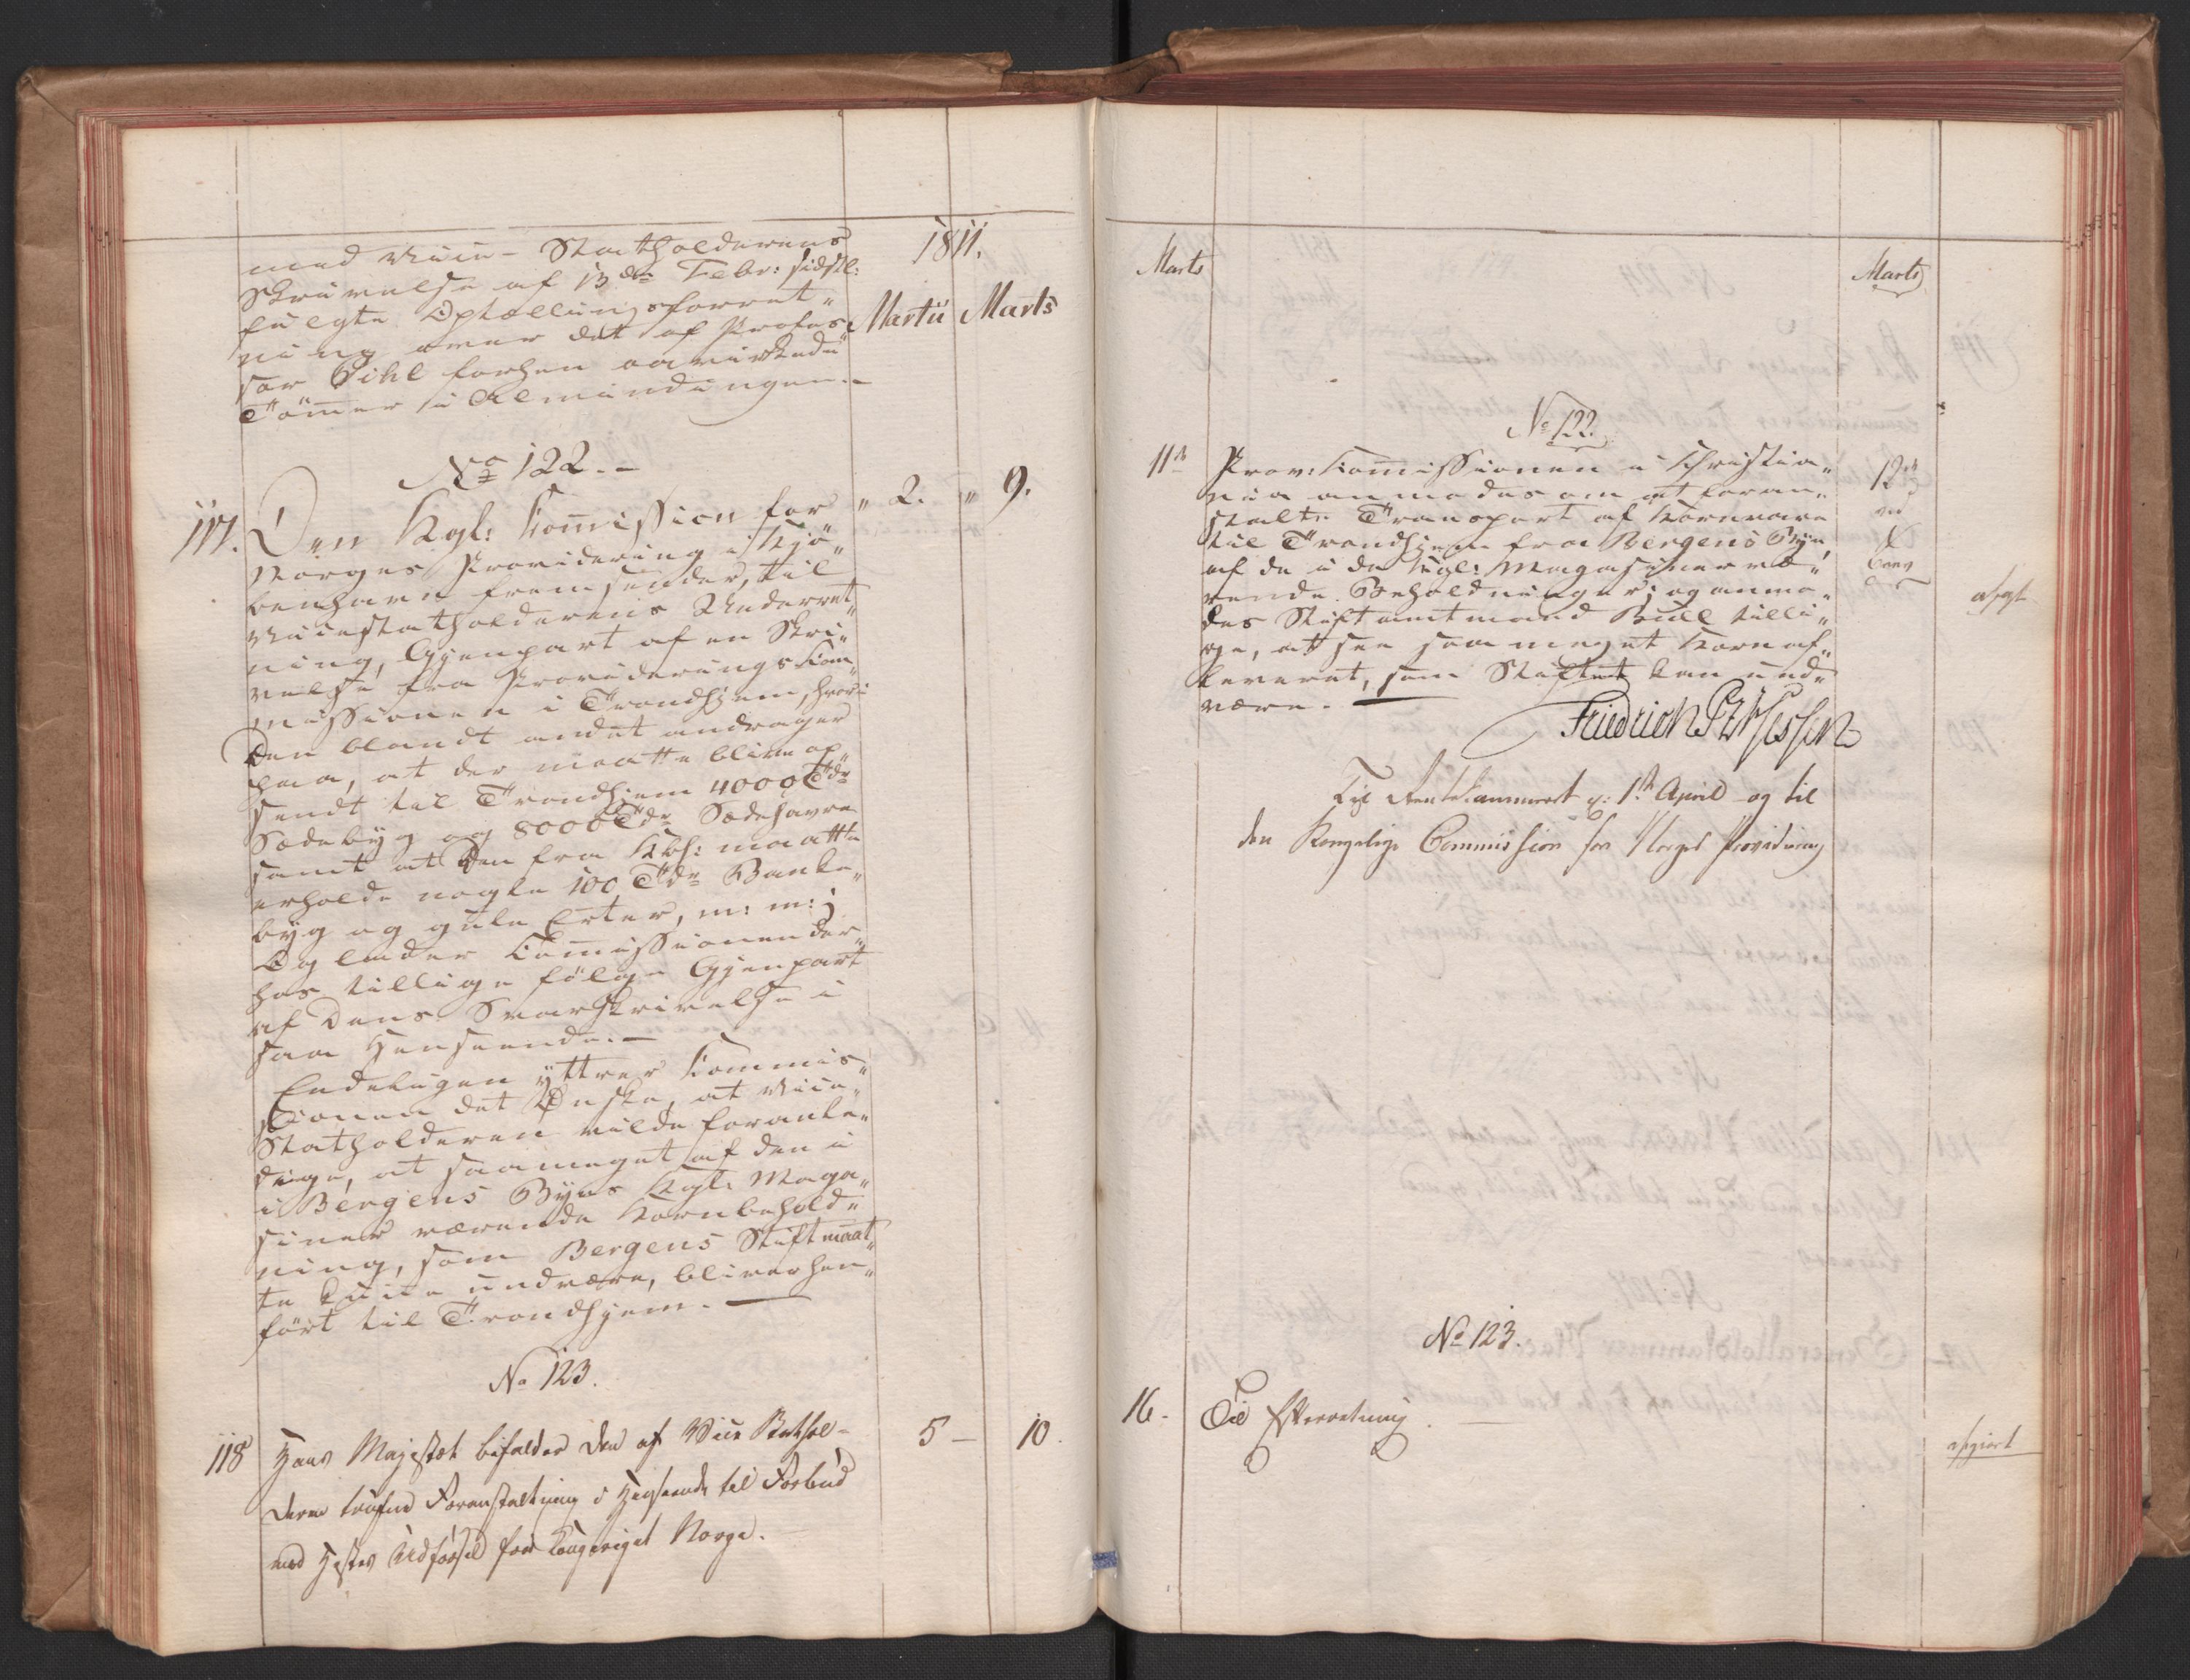 med Vice-Statholderens
Skrivelse af 13de Febr: sidstl:
fulgte Optællingsforret„
ning over det af Profes„
sor Pihl forhen aavirkede
Tömmer i Almindingen.-
1811.
Martii Marts
No 122.-
117. Den Kgl: Kommission for „ 2. „ 9.
Norges Providering i Kjö„
benhavn fremsender, til
Vicestatholderens Underret„
ning, Gjenpart af en Skri„
velse fra Providerings Kom„
missionen i Trondhjem, hvori
Den blandt andet andrager
paa, at der maatte blive op„
sendt til Trondhjem 4000 Tdr
Sædebyg og 8000 Tdr Sædehavre
samt at Den fra Kbh: maatte
erholde nogle 100 Tdr Banke„
byg og gule Erter, m: m:;
Og lader Kommissionen der„
hos tillige fölge Gjenpart
af Dens Svarskrivelse i
saa Henseende.-
Endeligen yttrer Kommis„
sionen det Önske, at Vice„
Statholderen vilde foranle„
dige, at saameget af den i
i Bergens Byes Kgl: Maga„
siner værende Kornbehold„
ning, som Bergens Stift maat„
te kunne undvære, bliver hen„
fört til Trondhjem.-
No 123.
118 Hans Majestæt bifalder den af Vice Stathol- 5 - 10.
deren trufne Foranstaltning i Henseende til Forbud
mod Hestes Udförsel fra Kongeriget Norge.
Marts
Marts
No 122.
11te Prov: Kommissionen i Christia„ 12te
nia anmodes om at foran„
stalte Transport af Kornvare
til Trondhjem fra Bergens Bye,
af de i de Kgl: Magasiner væ„
rende Beholdninger; og anmo„
des Stiftamtmand Bull tilli„
ge, at see saa meget Korn af„
leveret, som Stiftet kan und„
være.-
afgt
Friedrich PzHessen
Til Rentekammeret p: 1ste April og til
den Kongelige Commission for Norges Providering
No 123.
16- Til Efterretning.-
afgiort